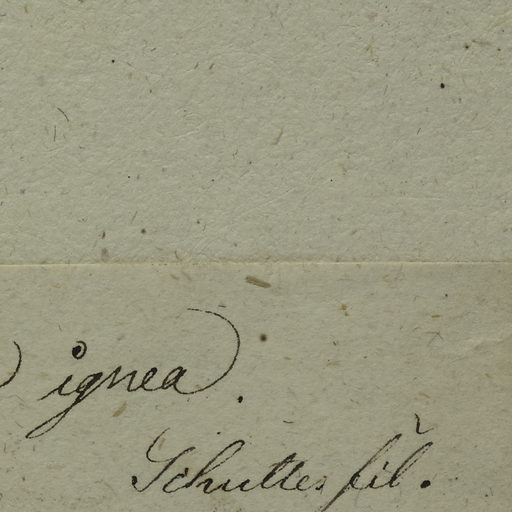 ignea.
Schultes fil.